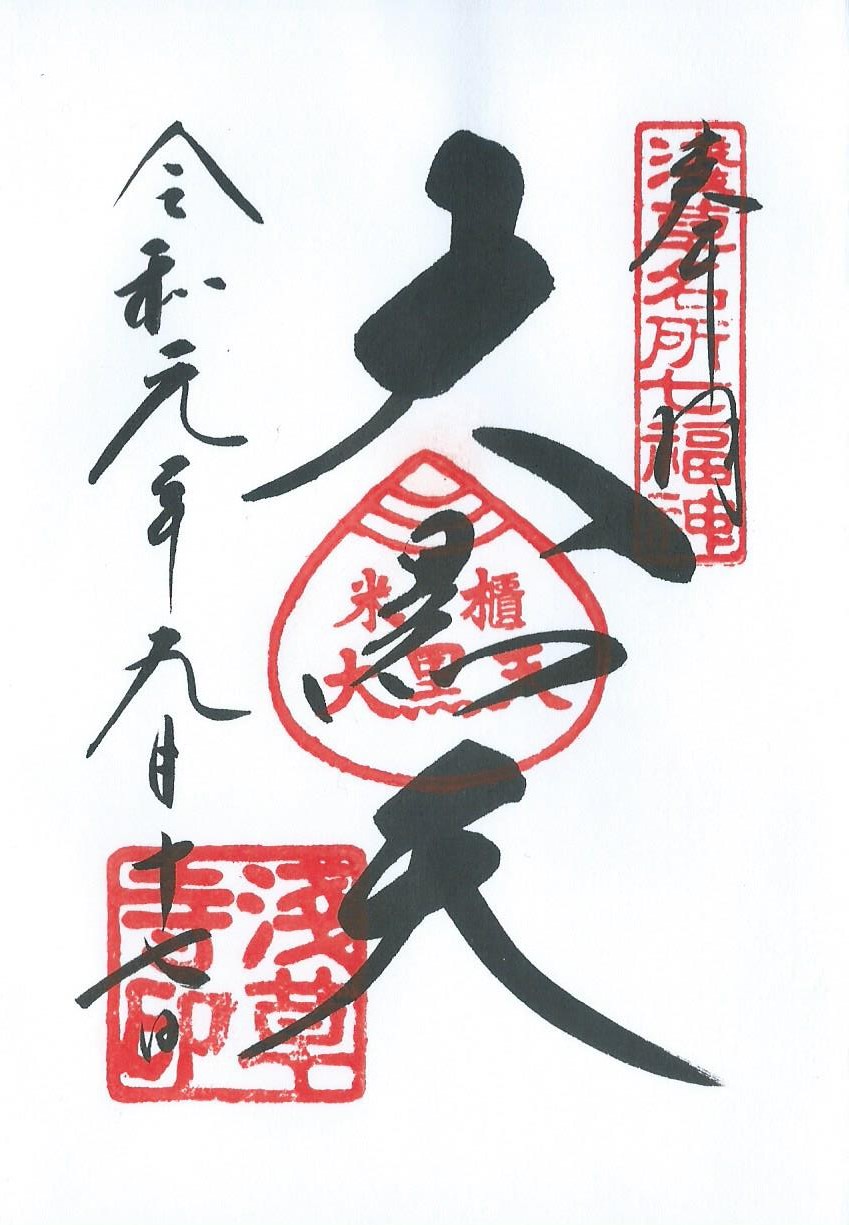 奉拝
浅草名所七福神
大黒天
米櫃
大黒天
令和元年九月十七日
浅草
寺印